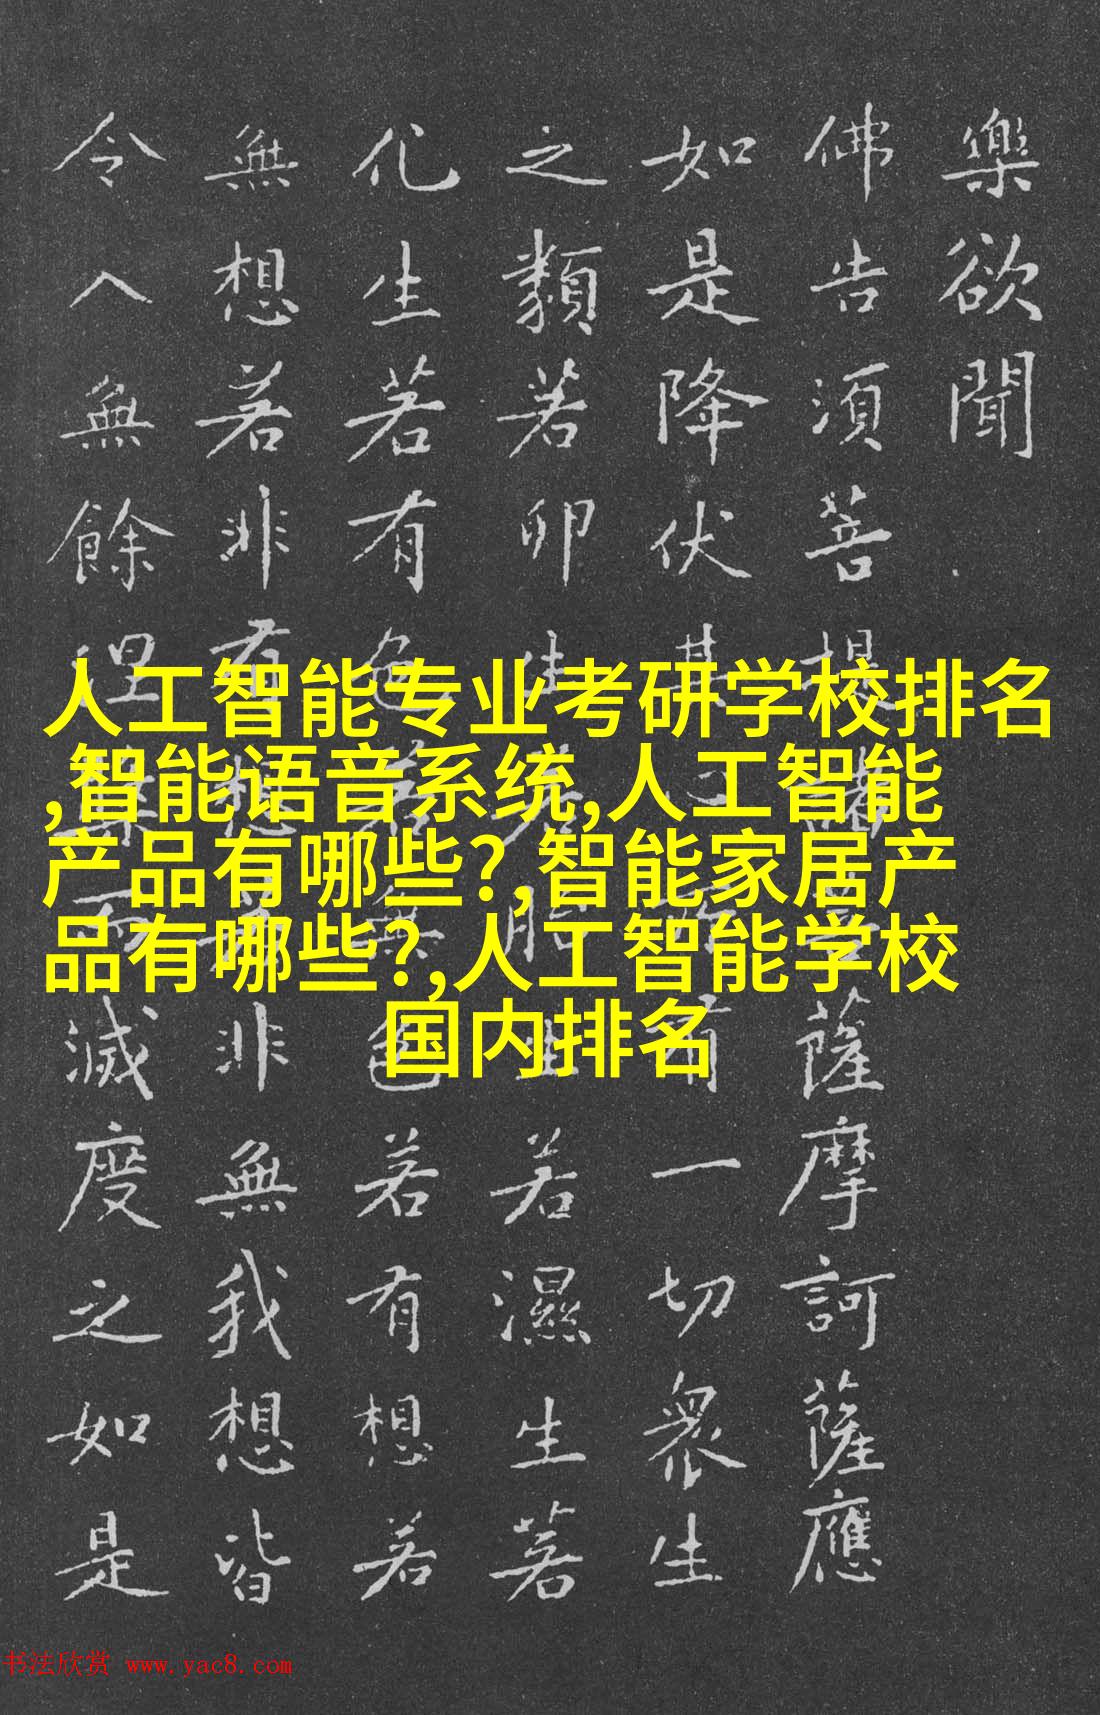 樂欲聞
佛告須菩提諸菩薩摩訶薩應
如是降伏其心所有一切衆生
之類若卵生若胎生若濕生若
化生若有色若無色若有想若
無想若非有想若非無我想皆
令入無餘涅槃而滅度之如是
人工智能专业考研学校排名
,智能语音系统,人工智能
产品有哪些?,智能家居产
品有哪些?,人工智能学校
国内排名
书法欣赏 www.yac8.com